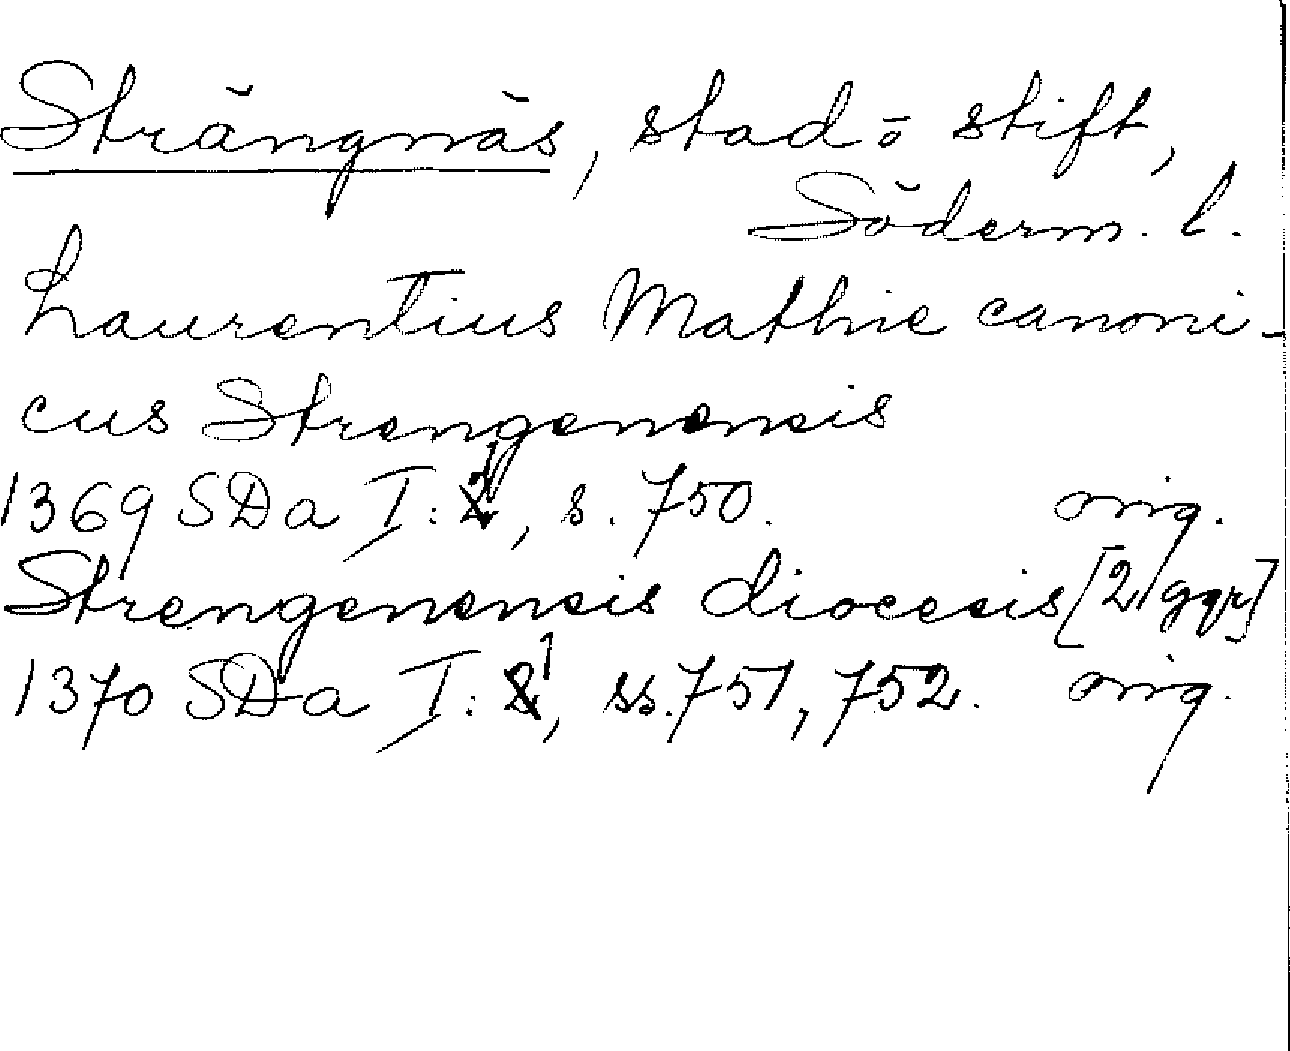 Strängnäs, stad o stift,
Söderm. l.
Laurentius Mathie canoni-
cus Strengenensis
1369 SDa I: 1, s. 750. orig.
Strengenensis diocesis [2 ggr]
1370 SDa I: 1, ss. 751, 752. orig.